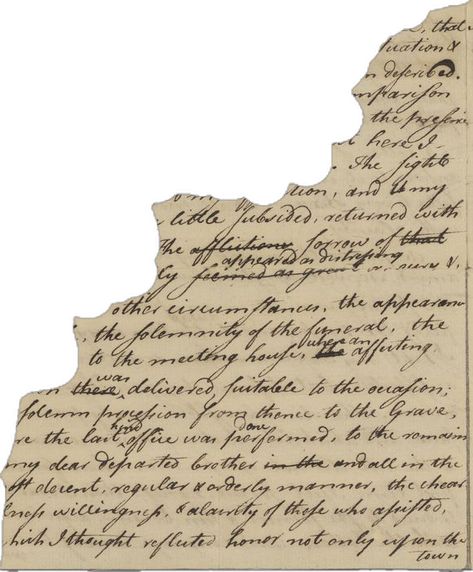 that
uation &
n described.
mparison
the presence
here I
. The sight
tion, and my
little subsided, returned with
The afflictions sorrow of that
appeared as distressing
ly seemed as great as ours &
other circumstances, the appearan
, the solemnity of the funeral, the
to the meeting house, the where an affecting
on there was delivered suitable to the occasion;
solemn procession from thence to the Grave,
re the last kind office was performed, done to the remain
my dear departed brother in the and all in the
st decent, regular & orderly manner, the chear
lness willingness, & alacrity of those who assisted,
hich I thought reflected honor not only upon the
town